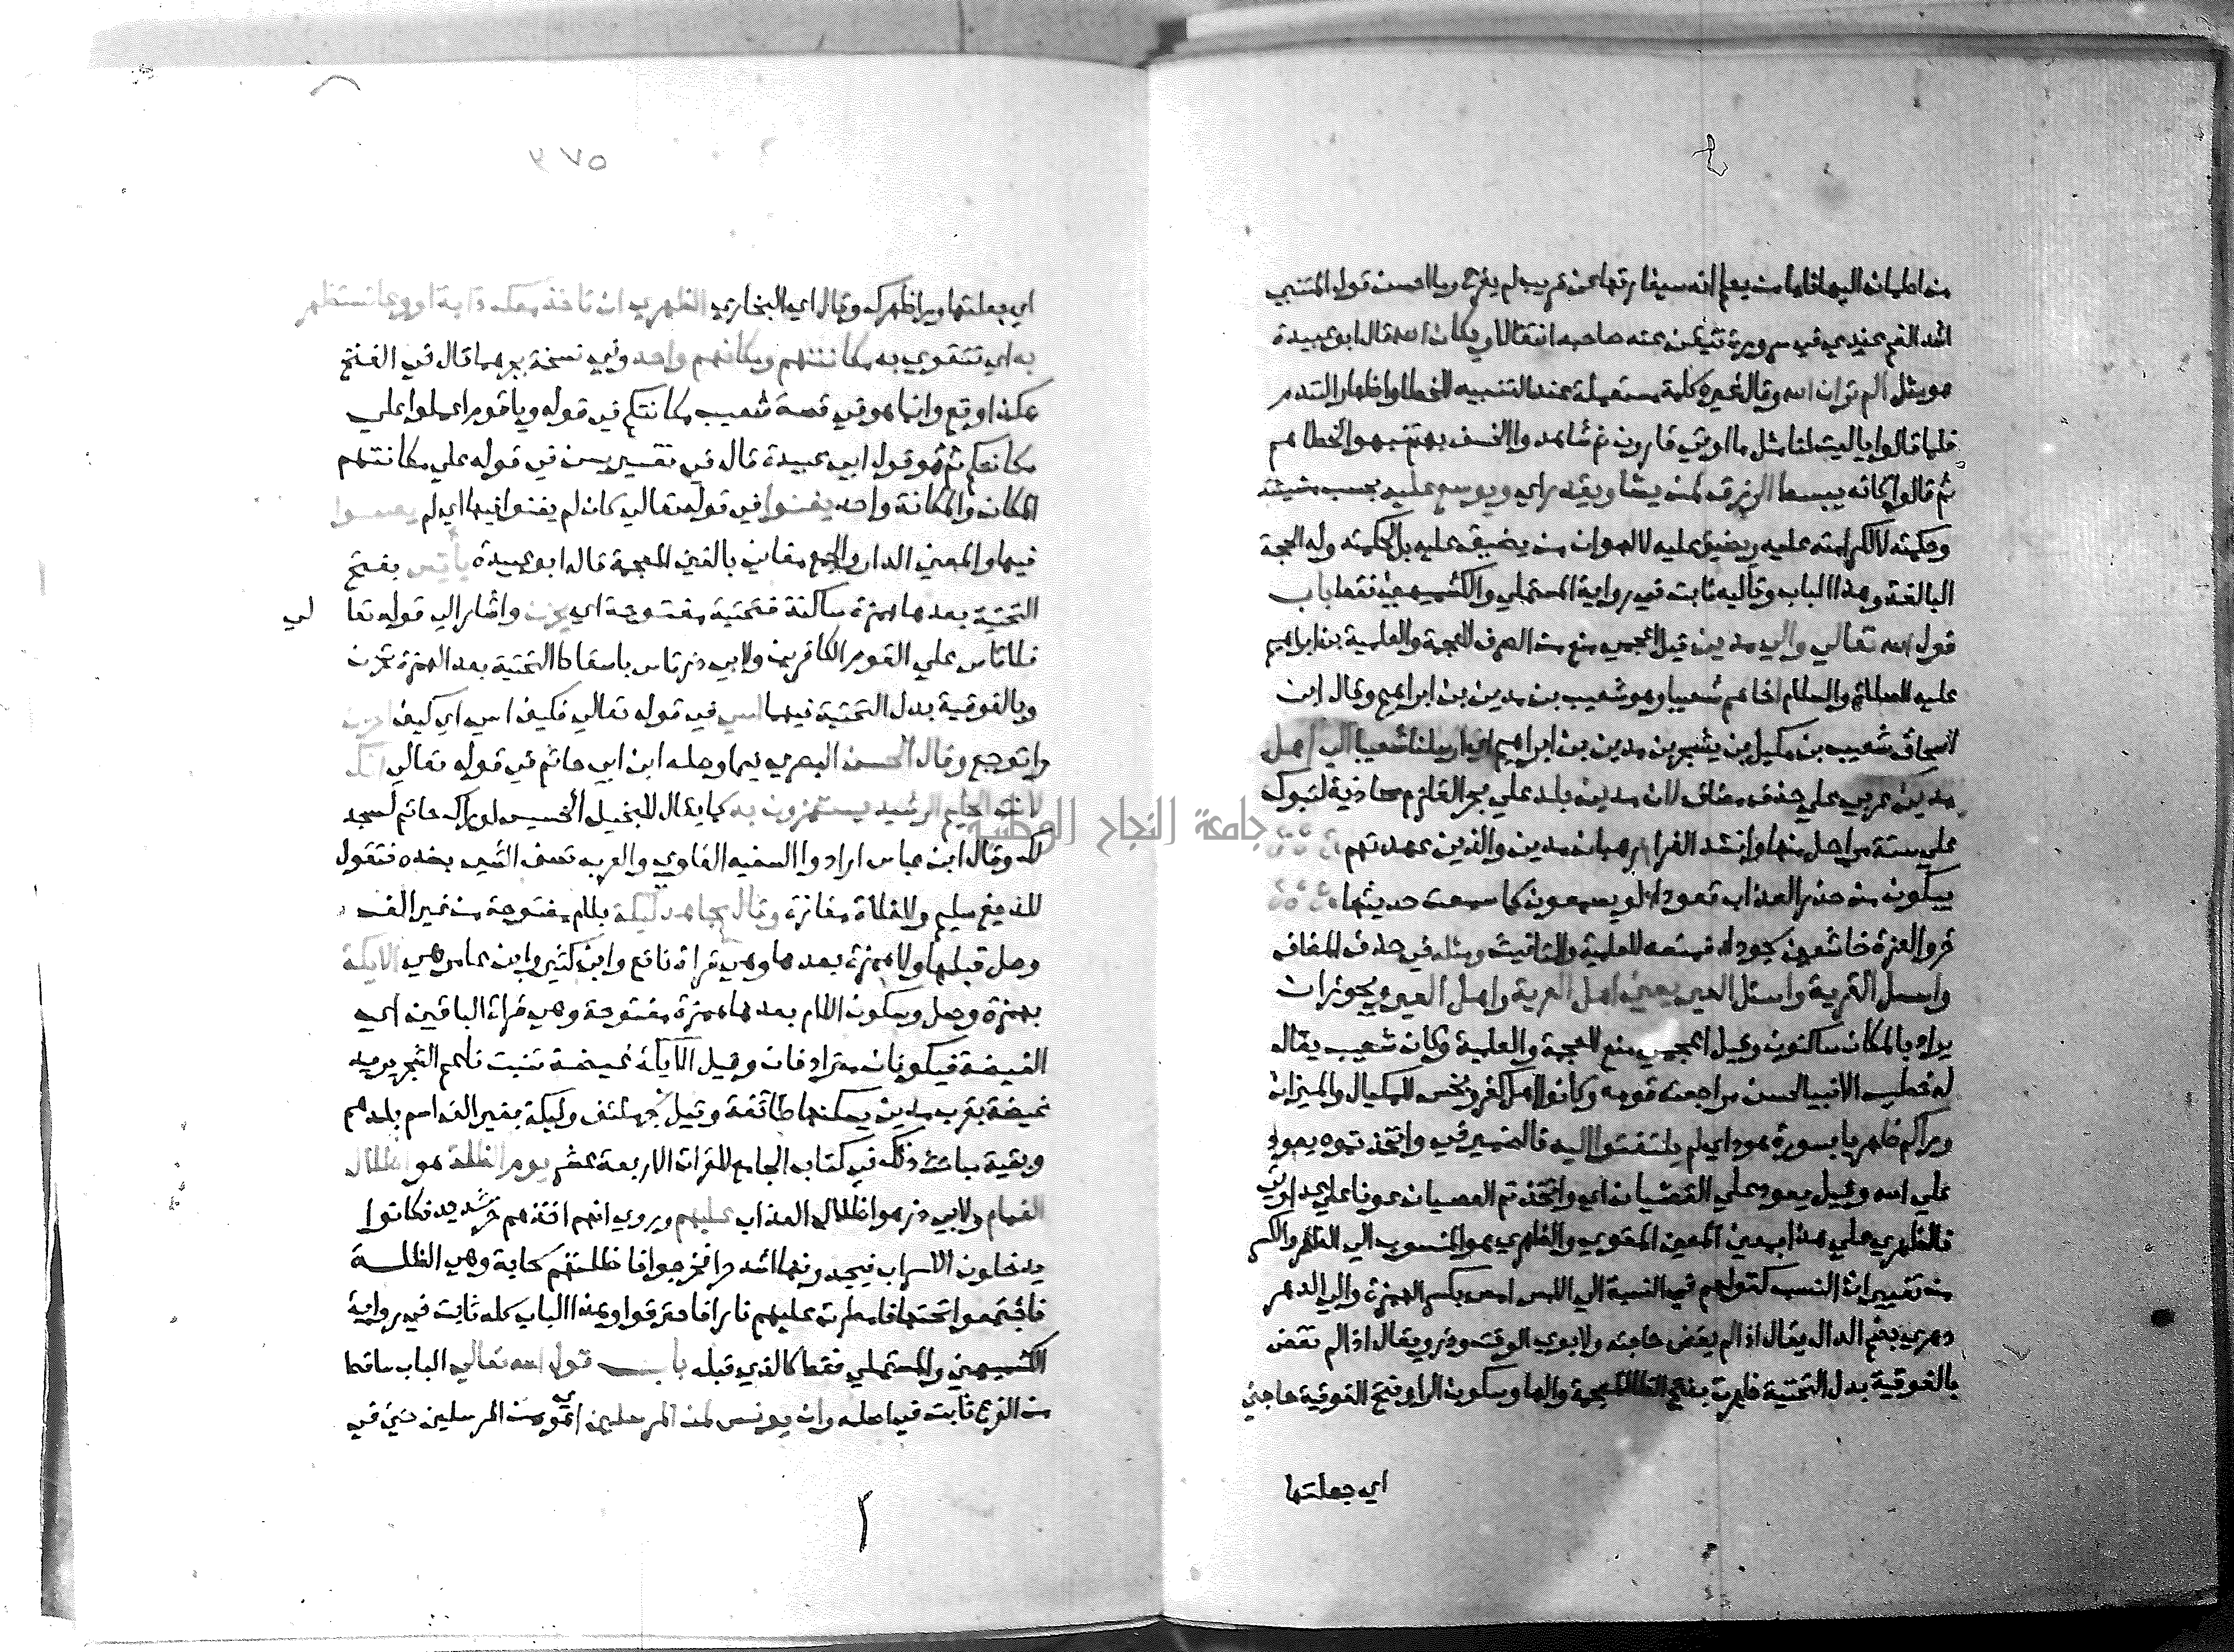 من اطمان اليها فاما من يعلم انه سيفارقها عن قريب لم يفرح وما احسن قول المتنبي
اشد الغم عندي في سرور تيقن عنه صاحبه انتقالا ويكان الله قال ابو عبيدة
هو مثل الم تر ان الله وقال غيره كلمة مستعملة عند التنبيه للخطا واظهار التندم
فلما قالوا ياليت لنا مثل ما اوتي قارون ثم شاهدوا الخسف به تنبهوا لخطاهم
ثم قالوا كانه يبسط الرزق لمن يشا ويقدر اي ويوسع عليه بحسب مشيئته
وحكمته لا لكرامته عليه ويضيق عليه لا لهوان من يضيق عليه بل لحكمته وله الحجة
البالغة وهذا الباب وتاليه ثابت في رواية المستملي والكشميهني فقط باب
قول الله تعالي والي مدين قيل اعجمي منع من الصرف للعجمة والعلمية بن ابراهيم
عليه الصلاة والسلام اخاهم شعيبا وهو شعيب بن مدين بن ابراهيم وقال ابن
اسحاق شعيب بن مكيل بن يشجر بن مدين بن ابراهيم اي ارسلنا شعيبا الي اهل
مدين عربي علي حذف مضاف لان مدين بلد علي بحر القلزم محاذية لتبوك
علي ستة مراحل منها وانشد الفرا رهبان مدين والذين عهدتهم
يبكون من حذر العذاب قعودا لو يسمعون كما سمعت حديثها
خروا لعزة خاشعين سجودا فمنعه للعلمية والتانيث ومثله في حذف المضاف
واسال القرية واسئل العير يعني اهل القرية واهل العير ويجوز ان
يراد بالمكان ساكنون وقيل اعجمي منع للعجمة والعلمية وكان شعيب يقال
له خطيب الانبيا لحسن مراجعته قومه وكانوا اهل كفر وبخس للمكيال والميزان
وراكم ظهريا بسورة هود اي لم يلتفتوا اليه فالضمير في واتخذتموه يعود
علي الله وقيل يعود علي العصيان اي واتخذتم العصيان عونا علي عداوتي
فالظهري علي هذا بمعني المعين المقوي والظهري هو المنسوب الي الظهر والكسر
من تغييرات النسب كقولهم في النسبة الي الامس امس بكسر الهمزة والي الدهر
دهري بضم الدال يقال اذا لم يقض حاجته ولابوي الوقت وذر ويقال اذا لم تقض
بالفوقية بدل التحتية ظهرت بفتح الظا المعجمة والها وسكون الرا وفتح الفوقية حاجتي
اي جعلتها
٥٧٣
اي جعلتها ورا ظهرك وقال اي البخاري الظهري ان تاخذ معك دابة او وعا تستظهر
به اي تتقوي به مكانتهم ومكانهم واحد وفي نسخة بجرهما قال في الفتح
هكذا وقع وانما هو في قصة شعيب مكانتكم في قوله ويا قوم اعملوا علي
مكانتكم ثم هو قول ابي عبيدة قال في تفسير يس في قوله علي مكانتهم
المكان والمكانة واحد يغنوا في قوله تعالي كان لم يغنوا فيها اي لم يعيشوا
فيها والمغني الدار والجمع مغاني بالغين المعجمة قاله ابو عبيدة يأيس بفتح
التحتية بعدها همزة ساكنة فتحتية مفتوحة اي يحزن واشار الي قوله تعا لي
فلا تاس علي القوم الكافرين ولابي ذر تاس باسقاط التحتية بعد الهمزة تحزن
وبالفوقية بدل التحتية فيهما اسي في قوله تعالي فكيف اسي اي كيف احزن
واتوجع وقال الحسن البصري فيما وصله ابن ابي حاتم في قوله تعالي انك
لانت الحليم الرشيد يستهزون به كما يقال للبخيل الخسيس لو راك حاتم لسجد
لك وقال ابن عباس ارادوا السفيه الغاوي والعرب تصف الشي بضده فتقول
للديغ سليم وللفلاة مفازة وقال مجاهد ليكة بلام مفتوحة من غير الف
وصل قبلها ولا همزة بعدها وهي قراة نافع وابن كثير وابن عامر هي الايكة
بهمزة وصل وسكون اللام بعدها همزة مفتوحة وهي قراة الباقين اي
الغيضة فيكونان مترادفان وقيل الايكة غيضة تنبت ناعم الشجر يريد
غيضة بقرب مدين يسكنها طائفة وقيل شجر ملتف وليكة بغير الف اسم بلدهم
وبقية مباحث ذلك في كتاب الجامع للقرات الاربعة عشر يوم الظلة هو اظلال
الغمام ولابي ذر هو اظلال العذاب عليهم وروي انهم اخذهم حر شديد فكانوا
يدخلون الاسراب فيجدونها اشد حرا فخرجوا فاظلتهم سحابة وهي الظلة
فاجتمعوا تحتها فامطرت عليهم نارا فاحترقوا وهذا الباب كله ثابت في رواية
الكشميهني والمستملي فقط كالذي قبله باب قول الله تعالي الباب ساقط
من الفرع ثابت في اصله وان يونس لمن المرسلين اي هو من المرسلين حتي في